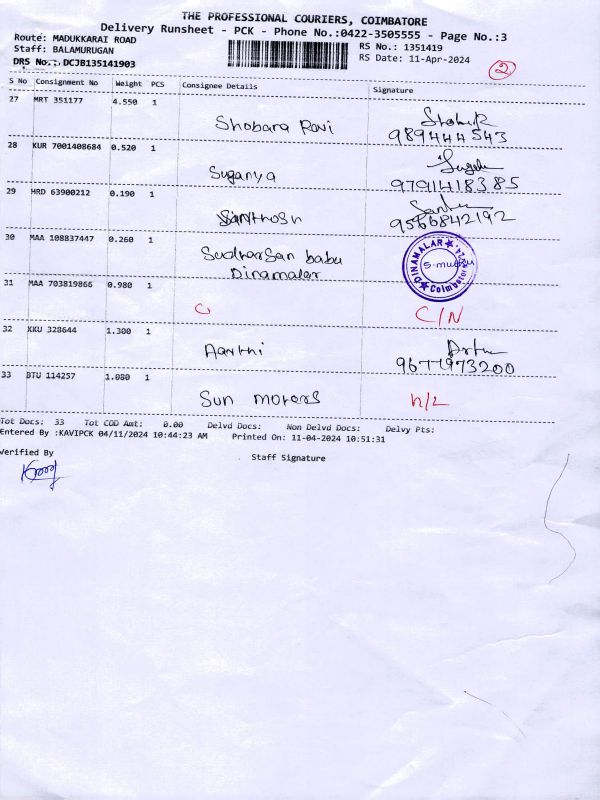 THE PROFESSIONAL COURIERS, COIMBATORE
Delivery Runsheet - PCK - Phone No.:0422-3505555 - Page No.:3
Route: MADUKKARAI ROAD
Staff: BALAMURUGAN
DRS No.:.DCJB135141903
RS No.: 1351419
RS Date: 11-Apr-2024
2
S No Consignment No Weight PCS Consignee Details Signature
27 MRT 351177 4.550 1
Shobara Ravi
989444543
28 KUR 7001408684 0.520 1
Suganya
9791418385
29 HRD 63900212 0.190 1
Santhosh
9566842192
30 MAA 108837447 0.260 1
Sudharsan babu
Dinamalar
DINAMALAR
Coimbatore
31 MAA 703819866 0.980 1
C/N
32 KKU 328644 1.300 1
Aarthi
9677973200
33 BTU 114257 1.080 1
Sun motors n/L
Tot Docs: 33 Tot COD Amt: 0.00 Delvd Docs: Non Delvd Docs: Delvy Pts:
Entered By :KAVIPCK 04/11/2024 10:44:23 AM Printed On: 11-04-2024 10:51:31
Verified By
Staff Signature